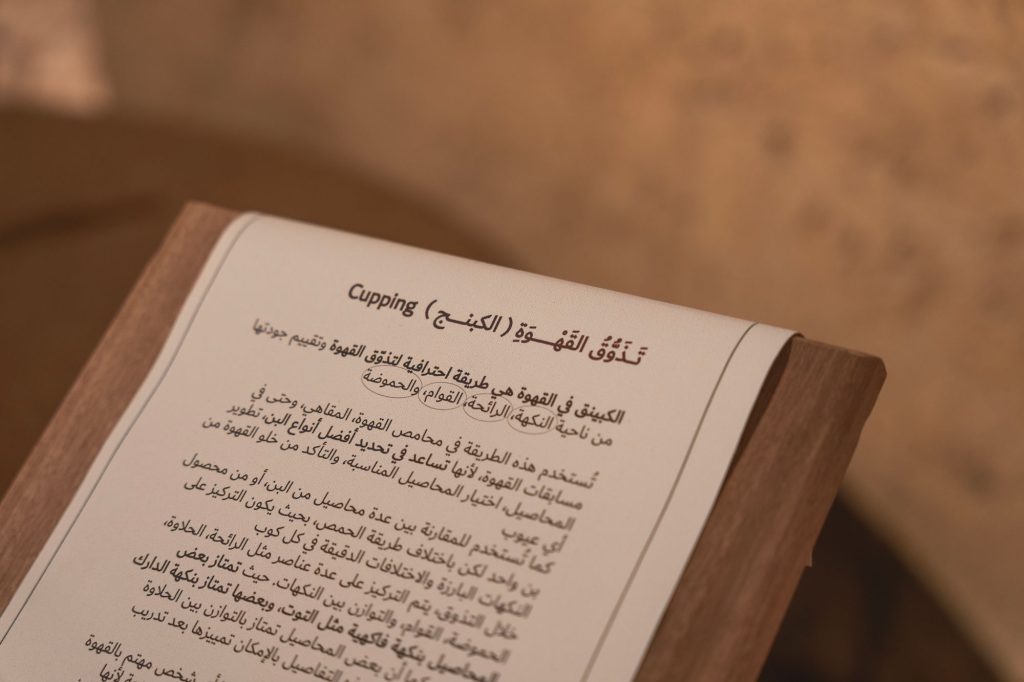 تَــذَوُّقُ القَهْـــوَةِ ( الكبنــج ) Cupping
الكبينق في القهوة هي طريقة احترافية لتذوّق القهوة وتقييم جودتها
من ناحية النكهة، الرائحة، القوام، والحموضة
تُستخدم هذه الطريقة في محامص القهوة، المقاهي، وحتى في
مسابقات القهوة، لأنها تساعد في تحديد أفضل أنواع البن، تطوير
المحاصيل، اختيار المحاصيل المناسبة، والتأكد من خلو القهوة من
أي عيوب
كما تُستخدم للمقارنة بين عدة محاصيل من البن، أو من محصول
بن واحد لكن باختلاف طريقة الحمص، بحيث يكون التركيز على
النكهات البارزة والاختلافات الدقيقة في كل كوب
خلال التذوق، يتم التركيز على عدة عناصر مثل الرائحة، الحلاوة،
الحموضة، القوام، والتوازن بين النكهات. حيث تمتاز بعض
المحاصيل بنكهة فاكهية مثل التوت، وبعضها تمتاز بنكهة الدارك
كما أن بعض المحاصيل تمتاز بالتوازن بين الحلاوة
التفاصيل بالإمكان تمييزها بعد تدريب
شخص مهتم بالقهوة
لأنها